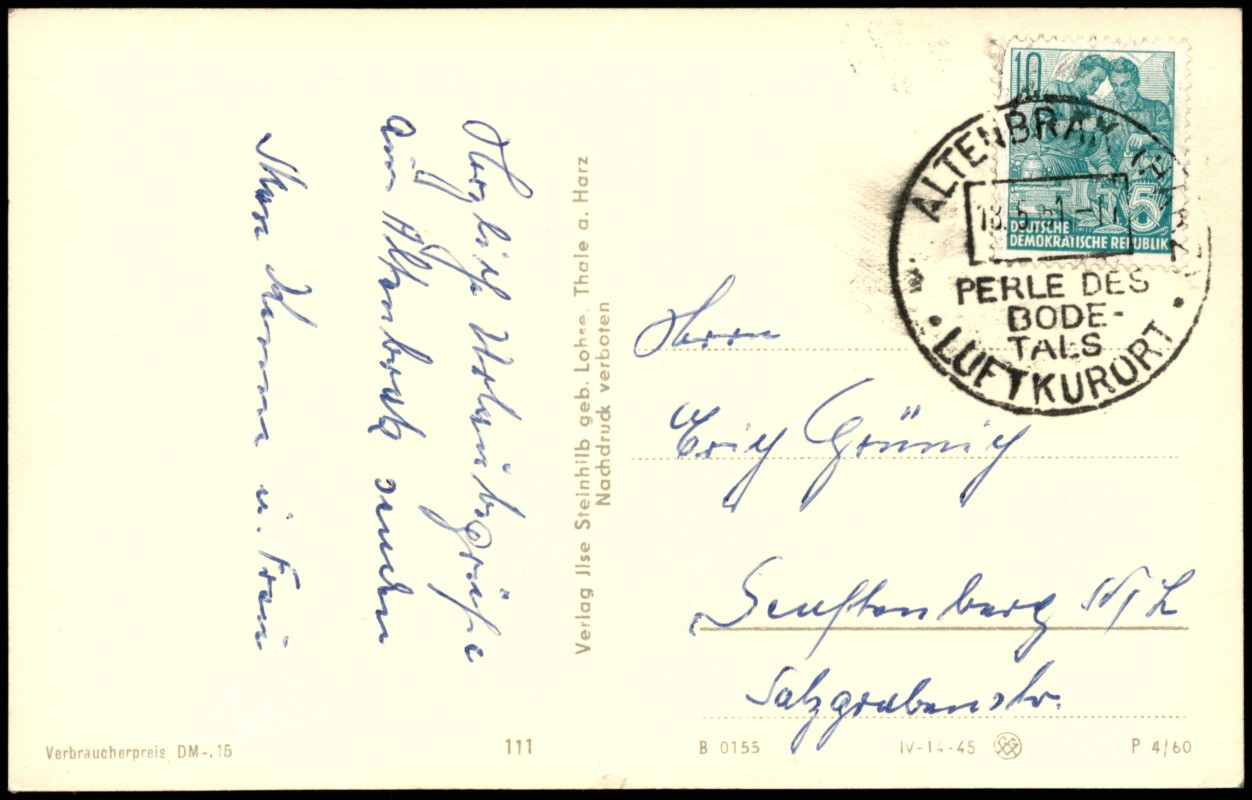 Herzliche Urlaubsgrüße
aus Altenbrak senden
u. Frau
Verlag Ilse Steinhilb geb. Lohse, Thale a. Harz
Nachdruck verboten
10
5
DEUTSCHE
DEMOKRATISCHE REPUBLIK
ALTENBRAK
18.5.61-11
PERLE DES
BODE-
TALS
LUFTKURORT
Herrn
Erich Grünig
Senftenberg N/L
Salzgrabenstr.
Verbraucherpreis DM-,15
111
B 0155
IV-14-45
P 4/60